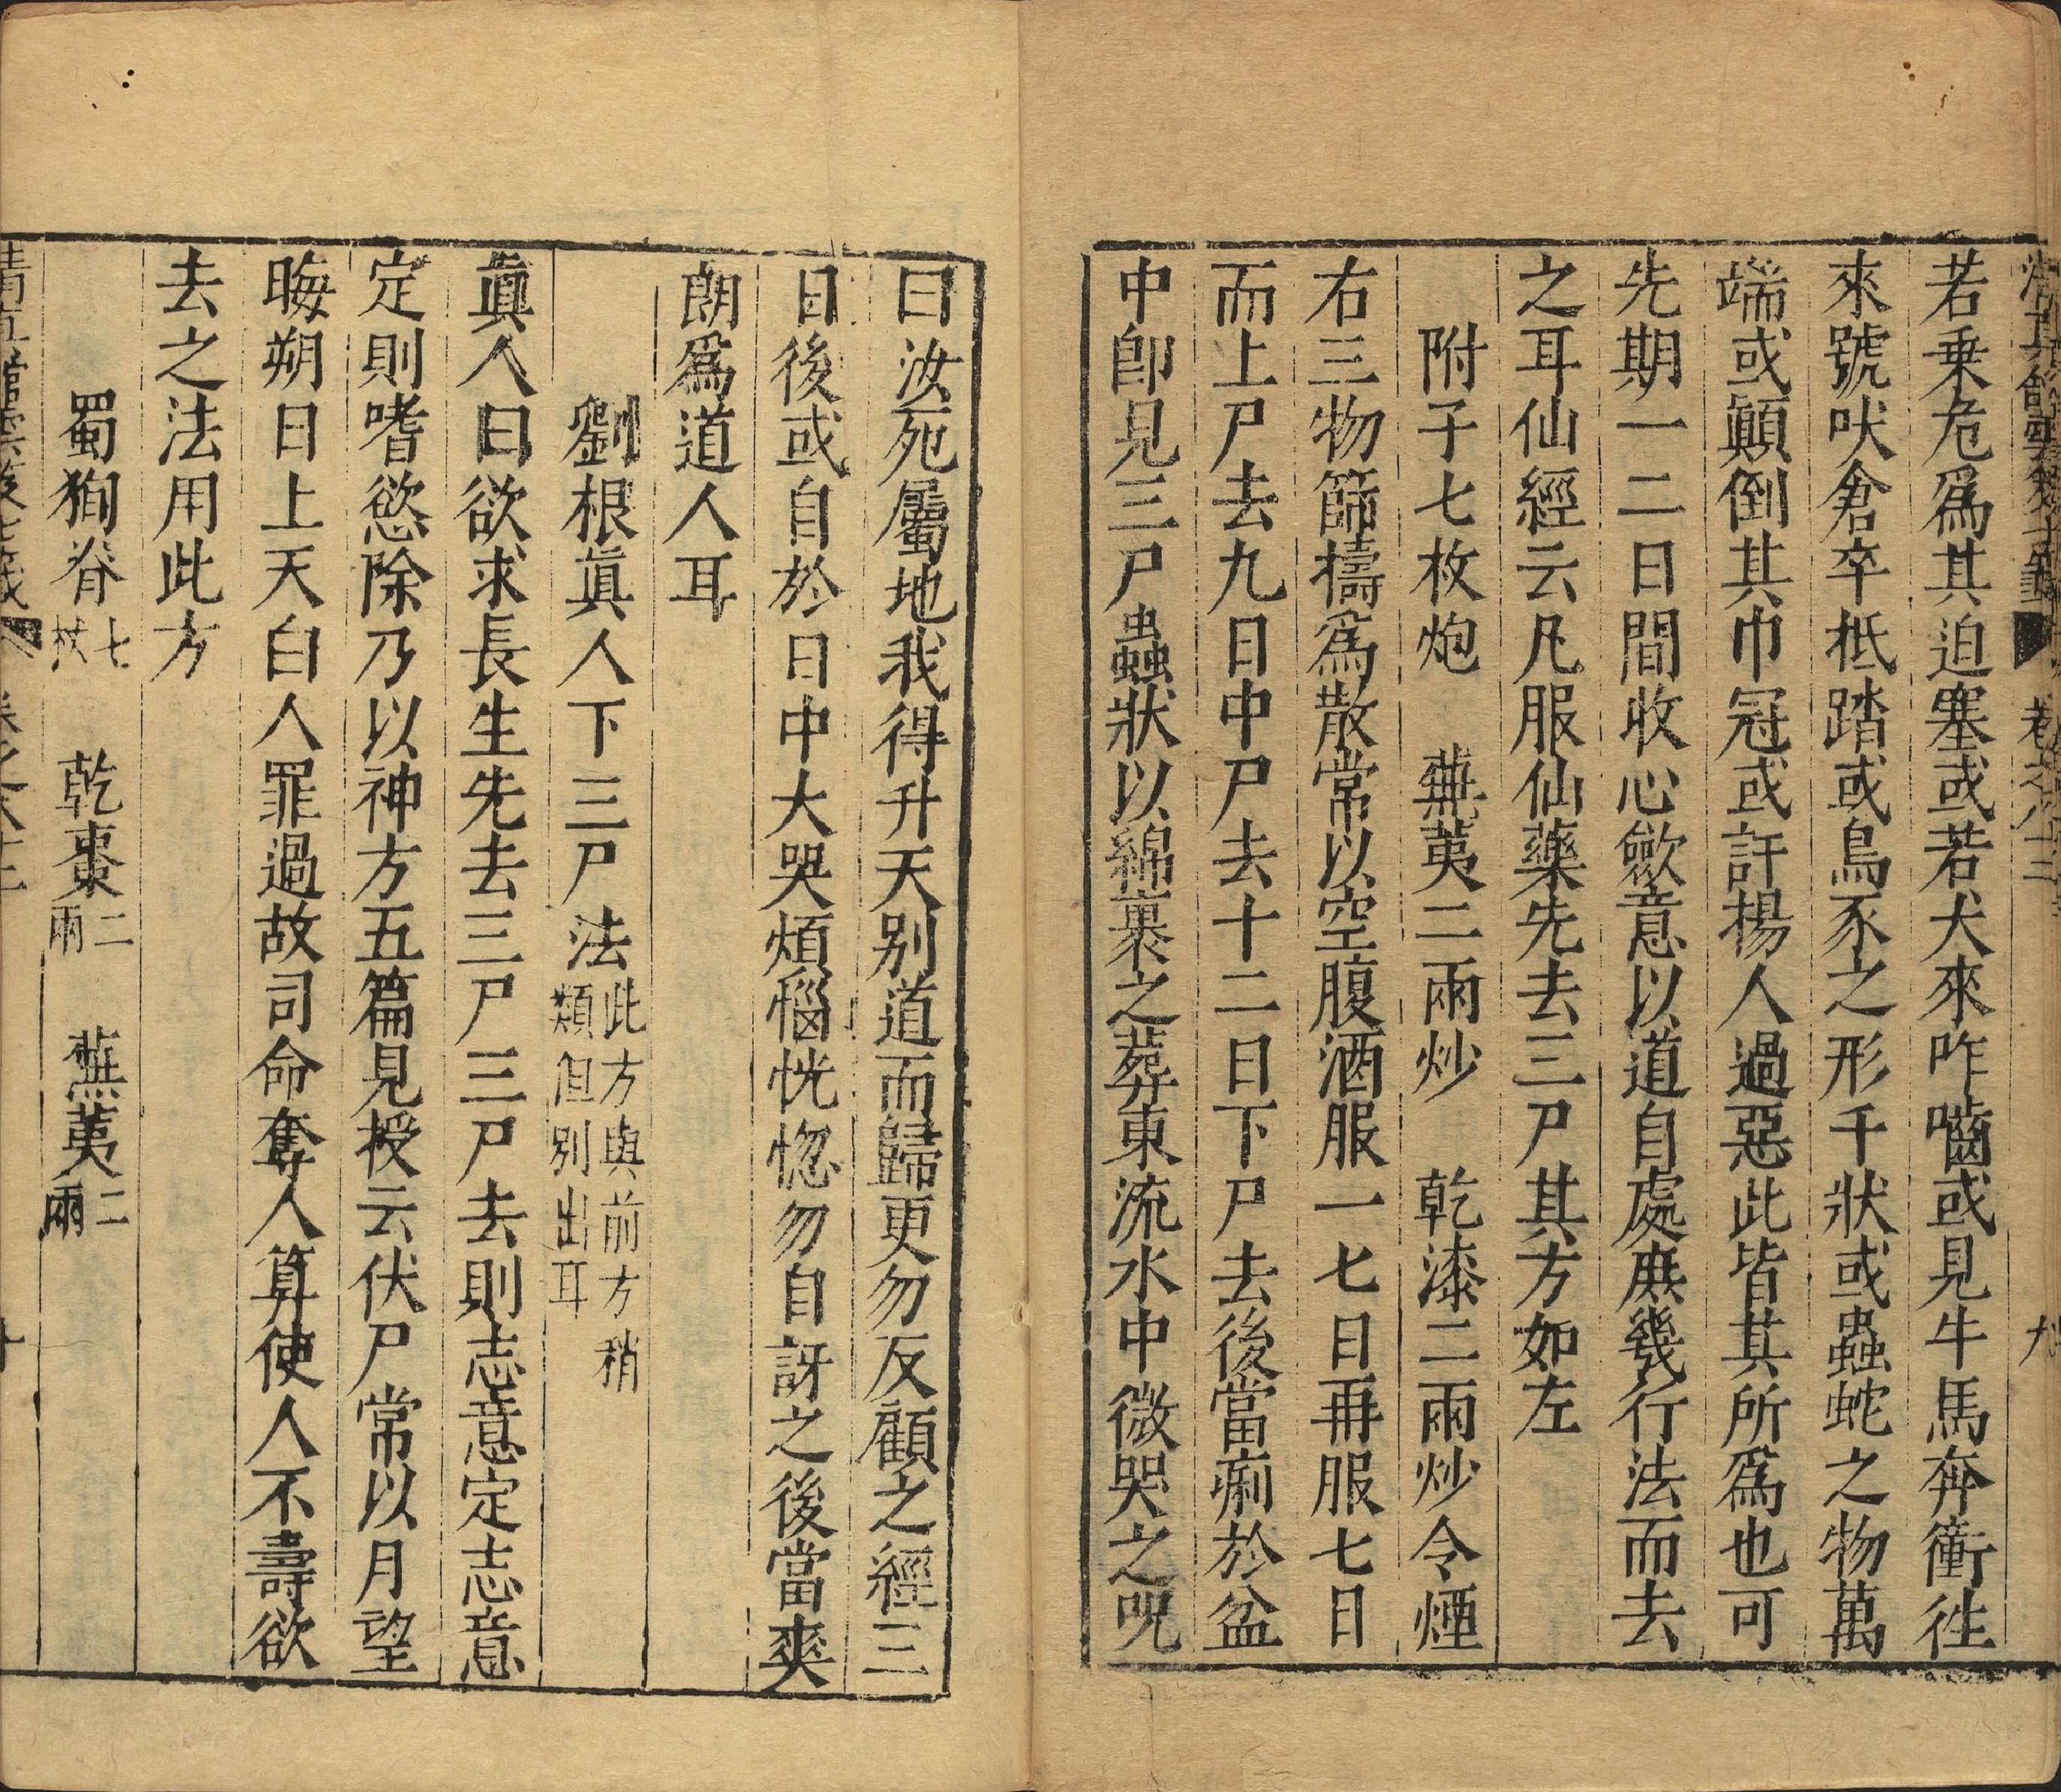 卷之八十三 九
若乗危爲其迫塞或若犬來咋嚙或見牛馬奔衝徃
來號吠倉卒抵踏或鳥豕之形千狀或蟲蛇之物萬
端或顚倒其巾冠或訐揚人過惡此皆其所爲也可
先期一二日間收心歛意以道自處庶幾行法而去
之耳仙經云凡服仙藥先去三尸其方如左
附子七枚炮 蕪荑二兩炒 乾漆二兩炒令煙
右三物篩擣爲散常以空腹酒服一七日再服七日
而上尸去九日中尸去十二日下尸去後當痢於盆
中卽見三尸蟲狀以綿裹之葬東流水中微哭之呪
曰汝死屬地我得升天别道而歸更勿反顧之經三
日後或自於日中大哭煩惱恍惚勿自訝之後當爽
朗爲道人耳
劉根眞人下三尸法此方與前方稍類但別出耳
眞人曰欲求長生先去三尸三尸去則志意定志意
定則嗜慾除乃以神方五篇見授云伏尸常以月望
晦朔日上天白人罪過故司命奪人算使人不壽欲
去之法用此方
蜀狗脊七 乾棗二兩 蕪荑二兩
十